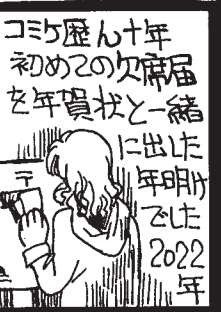 コミケ歴ん十年
初めての欠席届
を年賀状と一緒
に出した
年明け
でした
2022
年
〒